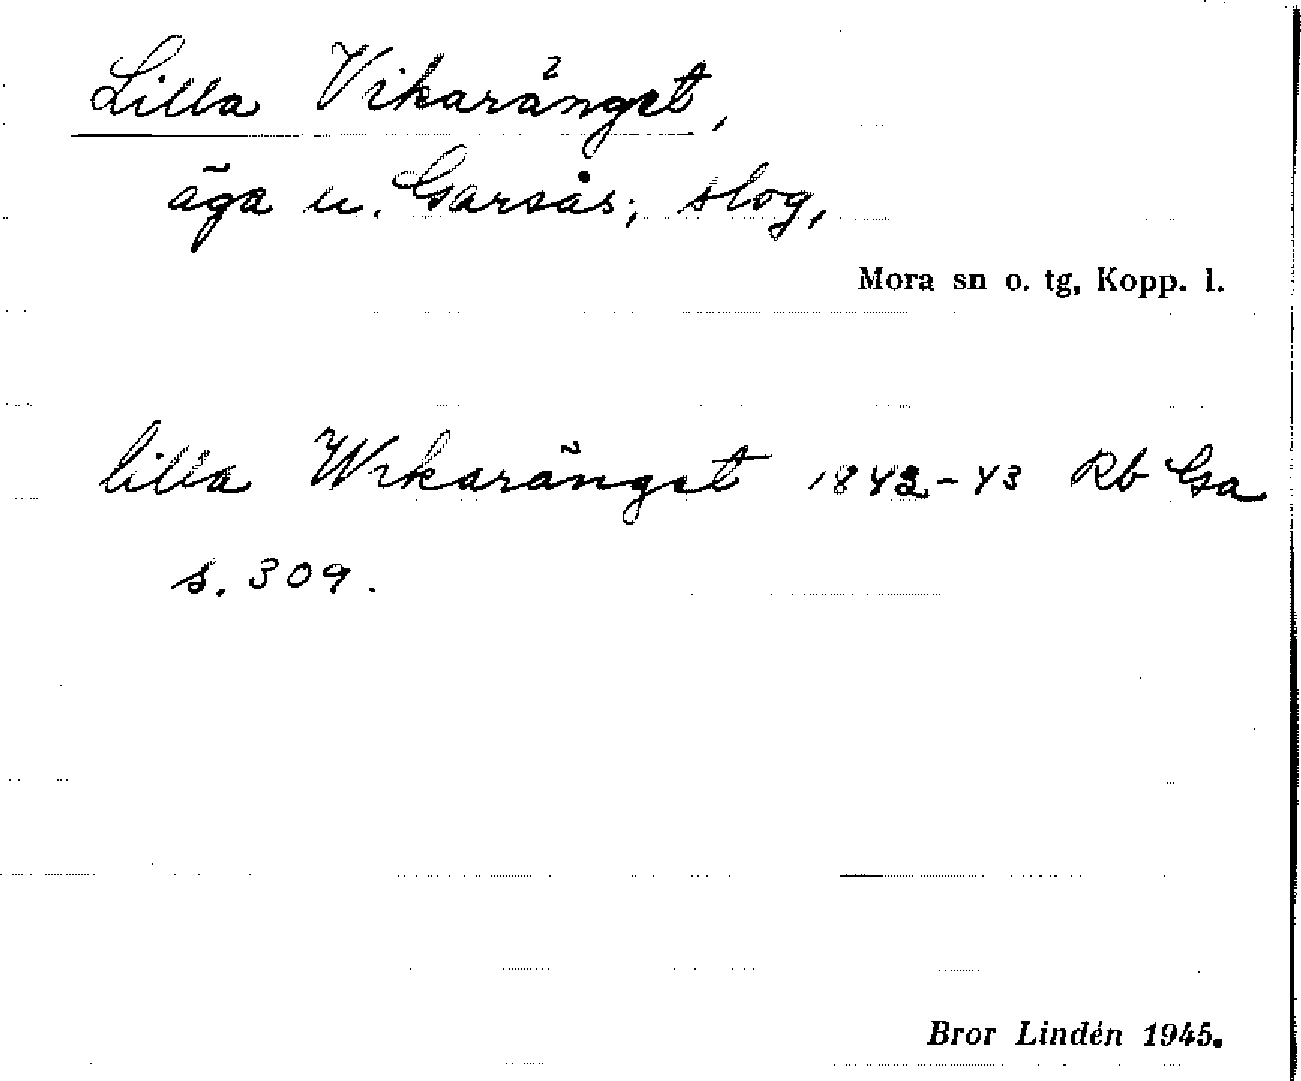 Lilla Vikaränget,
äga u. Garsås; slog,
Mora sn o. tg, Kopp. l.
lilla Wikaränget 1842-43 Rb Gsa
s. 309.
Bror Lindén 1945.